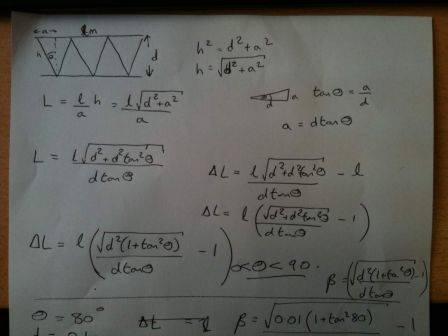 ←a→ l m
h θ d
h² = d² + a²
h = √(d² + a²)
L = l/a h = l√(d² + a²)/a
d a tanθ = a/d
a = d tanθ
L = l√(d² + d²tan²θ)/d tanθ
ΔL = l√(d² + d²tan²θ)/d tanθ - l
ΔL = l(√(d² + d²tan²θ)/d tanθ - 1)
ΔL = l(√(d²(1 + tan²θ))/d tanθ - 1) 0<θ<90.
β = (√(d²(1 + tan²θ))/d tanθ - 1)
θ = 80°
β = √(0.01(1 + tan²80)) - 1